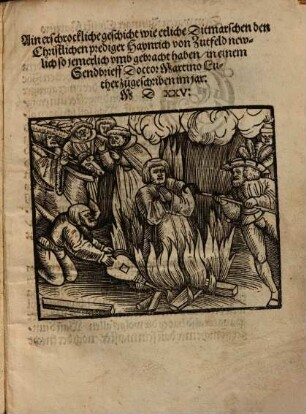 Ain erschrockliche geschicht wie etliche Ditmarschen den
Christlichen prediger Haynrich von Zutfeld new-
lich so jemerlich vmb gebracht haben / in einem
Sendbrieff Doctor Martino Lu-
ther zůgeschriben im jar.
M D XXV: